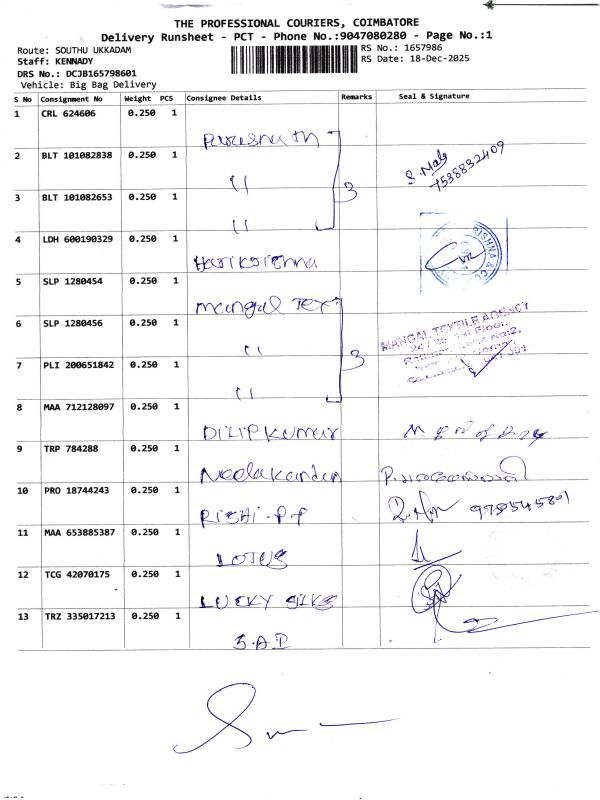 THE PROFESSIONAL COURIERS, COIMBATORE
Delivery Runsheet - PCT - Phone No.:9047080280 - Page No.:1
Route: SOUTHU UKKADAM
RS No.: 1657986
Staff: KENNADY
RS Date: 18-Dec-2025
DRS No.: DCJB165798601
Vehicle: Big Bag Delivery
S No Consignment No Weight PCS Consignee Details Remarks Seal & Signature
1 CRL 624606 0.250 1
2 BLT 101082838 0.250 1 " 7538832409
3 BLT 101082653 0.250 1 " 3
4 LDH 600190329 0.250 1 Harikrishna
5 SLP 1280454 0.250 1 Mangal Text
6 SLP 1280456 0.250 1 " MANGAL TEXTILE AGENCY
7 PLI 200651842 0.250 1 " 3
8 MAA 712128097 0.250 1 DILIP Kumar
9 TRP 784288 0.250 1 Neelakandan
10 PRO 18744243 0.250 1 RISHI.P.P
11 MAA 653885387 0.250 1 LOTUS
12 TCG 42070175 0.250 1 LUCKY SILKS
13 TRZ 335017213 0.250 1 S.A.D